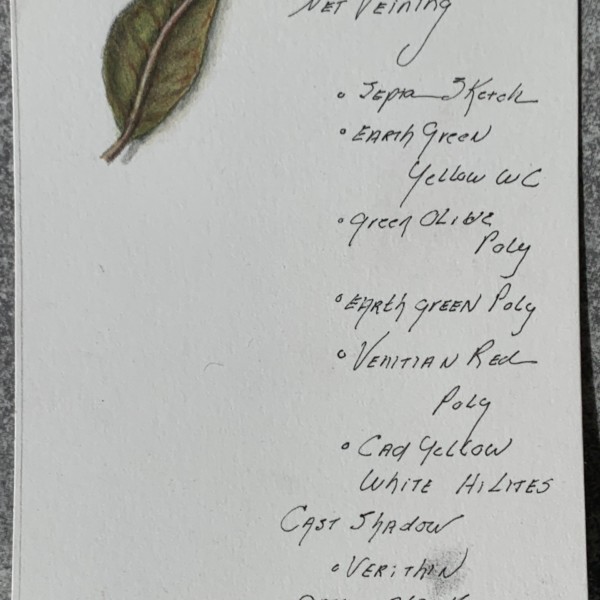 Net Veining
• Sepia Sketch
• Earth Green
Yellow WC
• Green Olive
Poly
• Earth Green Poly
• Venitian Red
Poly
• Cad Yellow
White HiLites
Cast Shadow
• Verithin